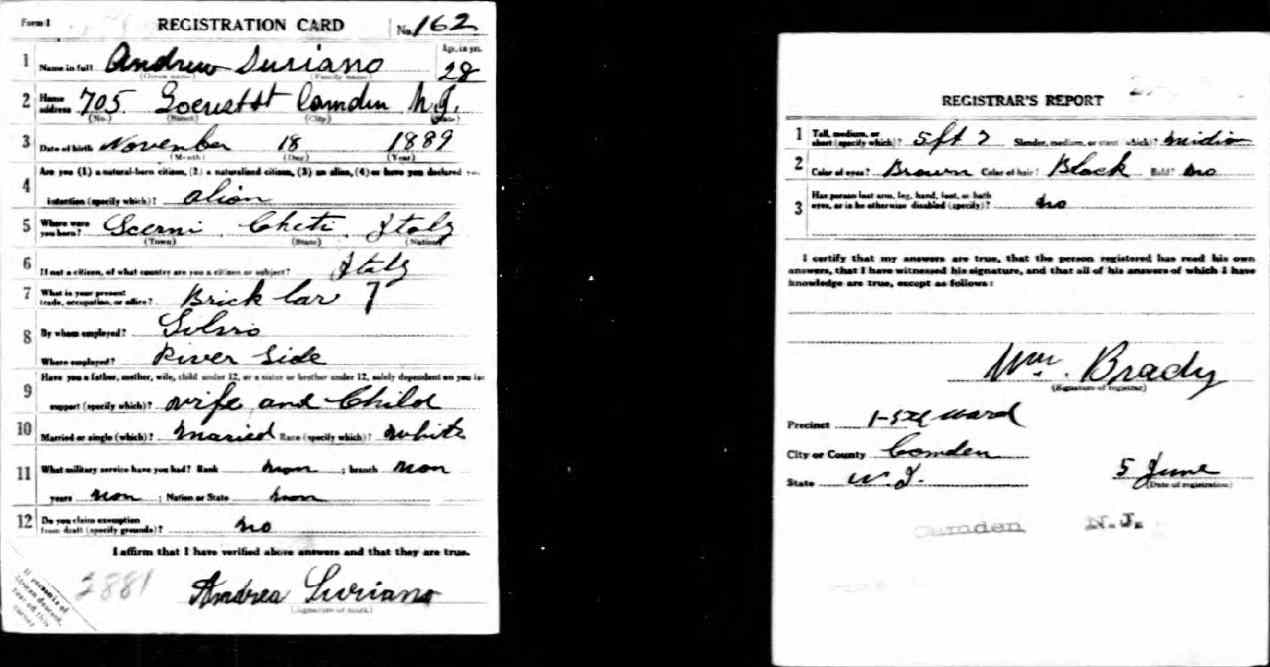 Form 1 REGISTRATION CARD No. 162
1 Name in full Andrew Suriano Age, in yrs. 28
(Given name) (Family name)
2 Home address 705 Locust St Camden N.J.
(No.) (Street) (City) (State)
3 Date of birth November 18 1889
(Month) (Day) (Year)
4 Are you (1) a natural-born citizen, (2) a naturalized citizen, (3) an alien, (4) or have you declared your
intention (specify which)? alion
5 Where were you born? Scerni Cheti Italy
(Town) (State) (Nation)
6 If not a citizen, of what country are you a citizen or subject? Italy
7 What is your present trade, occupation, or office? Brick lar
8 By whom employed?
Where employed? River Side
9 Have you a father, mother, wife, child under 12, or a sister or brother under 12, solely dependent on you for
support (specify which)? wife and Child
10 Married or single (which)? Maried Race (specify which)? White
11 What military service have you had? Rank non ; branch non
years non ; Nation or State non
12 Do you claim exemption from draft (specify grounds)? no
I affirm that I have verified above answers and that they are true.
2881 Andrea Suriano
(Signature or mark)
If person is of African descent, tear off this corner
REGISTRAR'S REPORT
1 Tall, medium, or short (specify which)? 5ft 7 Slender, medium, or stout (which)? midio
2 Color of eyes? Brown Color of hair? Black Bald? no
3 Has person lost arm, leg, hand, foot, or both eyes, or is he otherwise disabled (specify)? no
I certify that my answers are true, that the person registered has read his own
answers, that I have witnessed his signature, and that all of his answers of which I have
knowledge are true, except as follows:
Wm. Brady
(Signature of registrar)
Precinct 1-5th ward
City or County Camden
State N.J.
5 June
(Date of registration)
Camden N.J.